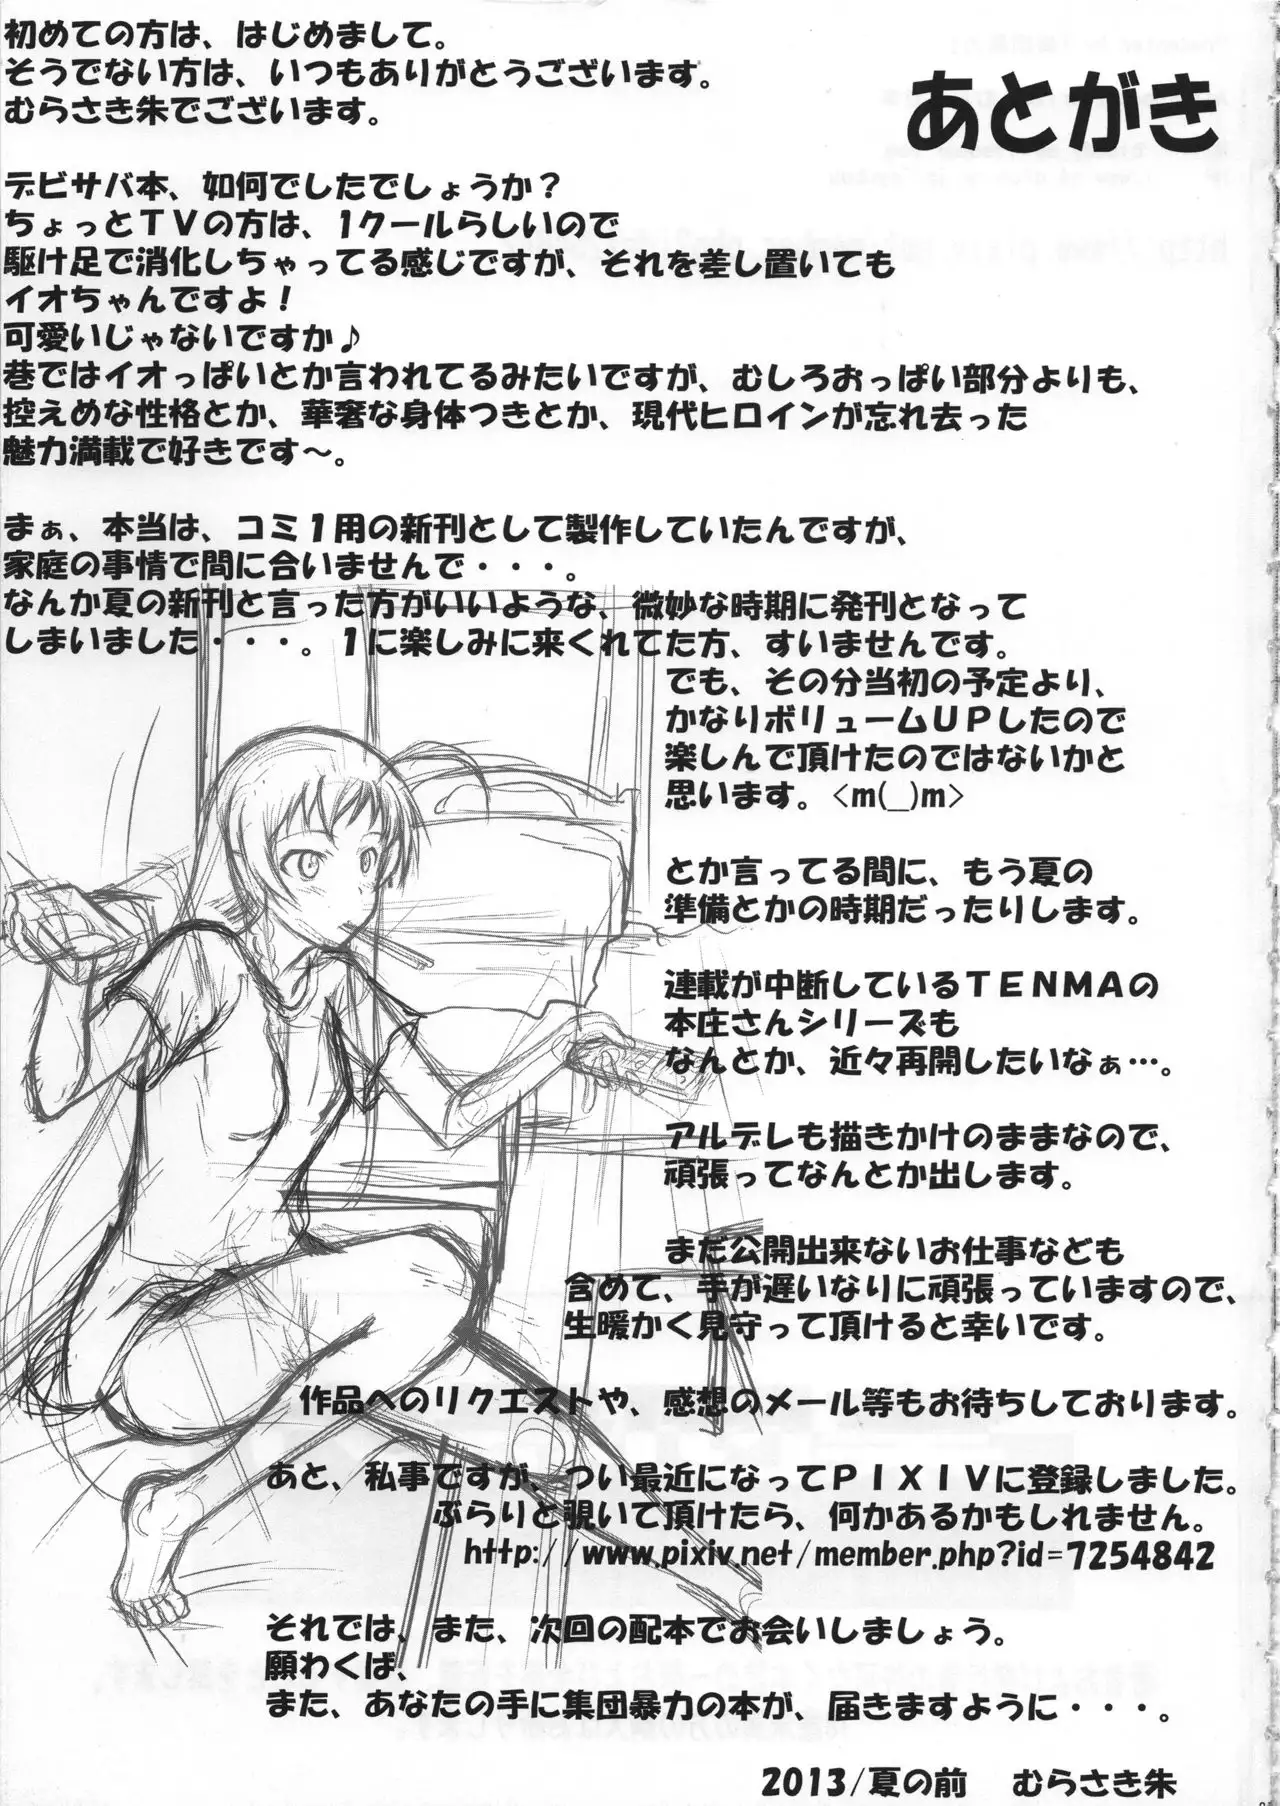 あとがき
初めての方は、はじめまして。
そうでない方は、いつもありがとうございます。
むらさき朱でございます。
デビサバ本、如何でしたでしょうか？
ちょっとＴＶの方は、１クールらしいので
駆け足で消化しちゃってる感じですが、それを差し置いても
イオちゃんですよ！
可愛いじゃないですか♪
巷ではイオっぱいとか言われてるみたいですが、むしろおっぱい部分よりも、
控えめな性格とか、華奢な身体つきとか、現代ヒロインが忘れ去った
魅力満載で好きです～。
まぁ、本当は、コミ１用の新刊として製作していたんですが、
家庭の事情で間に合いませんで・・・。
なんか夏の新刊と言った方がいいような、微妙な時期に発刊となって
しまいました・・・。１に楽しみに来くれてた方、すいませんです。
でも、その分当初の予定より、
かなりボリュームＵＰしたので
楽しんで頂けたのではないかと
思います。<m(_)m>
とか言ってる間に、もう夏の
準備とかの時期だったりします。
連載が中断しているＴＥＮＭＡの
本庄さんシリーズも
なんとか、近々再開したいなぁ…。
アルデレも描きかけのままなので、
頑張ってなんとか出します。
まだ公開出来ないお仕事なども
含めて、手が遅いなりに頑張っていますので、
生暖かく見守って頂けると幸いです。
作品へのリクエストや、感想のメール等もお待ちしております。
あと、私事ですが、つい最近になってＰＩＸＩＶに登録しました。
ぶらりと覗いて頂けたら、何かあるかもしれません。
http://www.pixiv.net/member.php?id=7254842
それでは、また、次回の配本でお会いしましょう。
願わくば、
また、あなたの手に集団暴力の本が、届きますように・・・。
2013/夏の前　むらさき朱